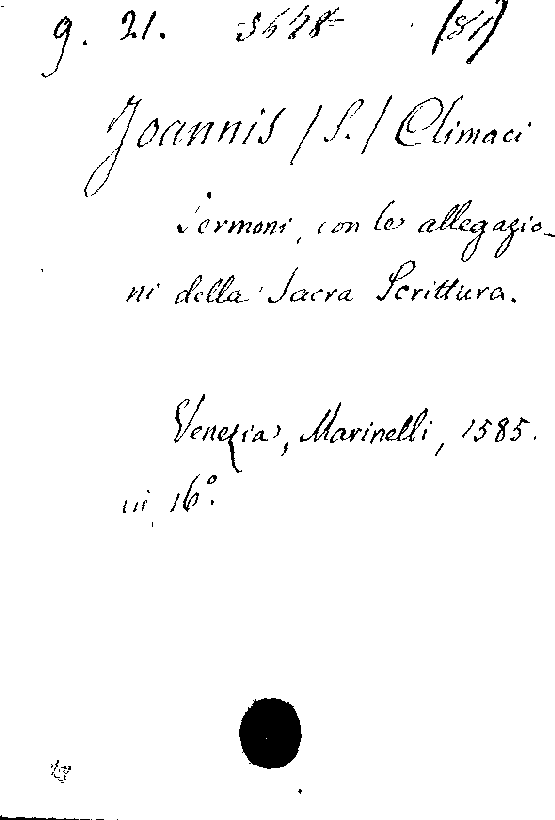 g. 21. 3648 (81)
Joannis /S./ Climaci
Sermoni, con le allegazio-
ni della Sacra Scrittura.
Venezia, Marinelli, 1585.
in 16°.